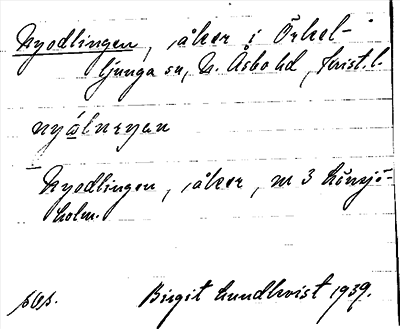 Nyodlingen, åker i Örkel-
ljunga sn, N. Åsbo hd, krist. l.
nyålneŋan
Nyodlingen, åker, m 3 Lönsjö-
holm.
Birgit Lundkvist 1939.